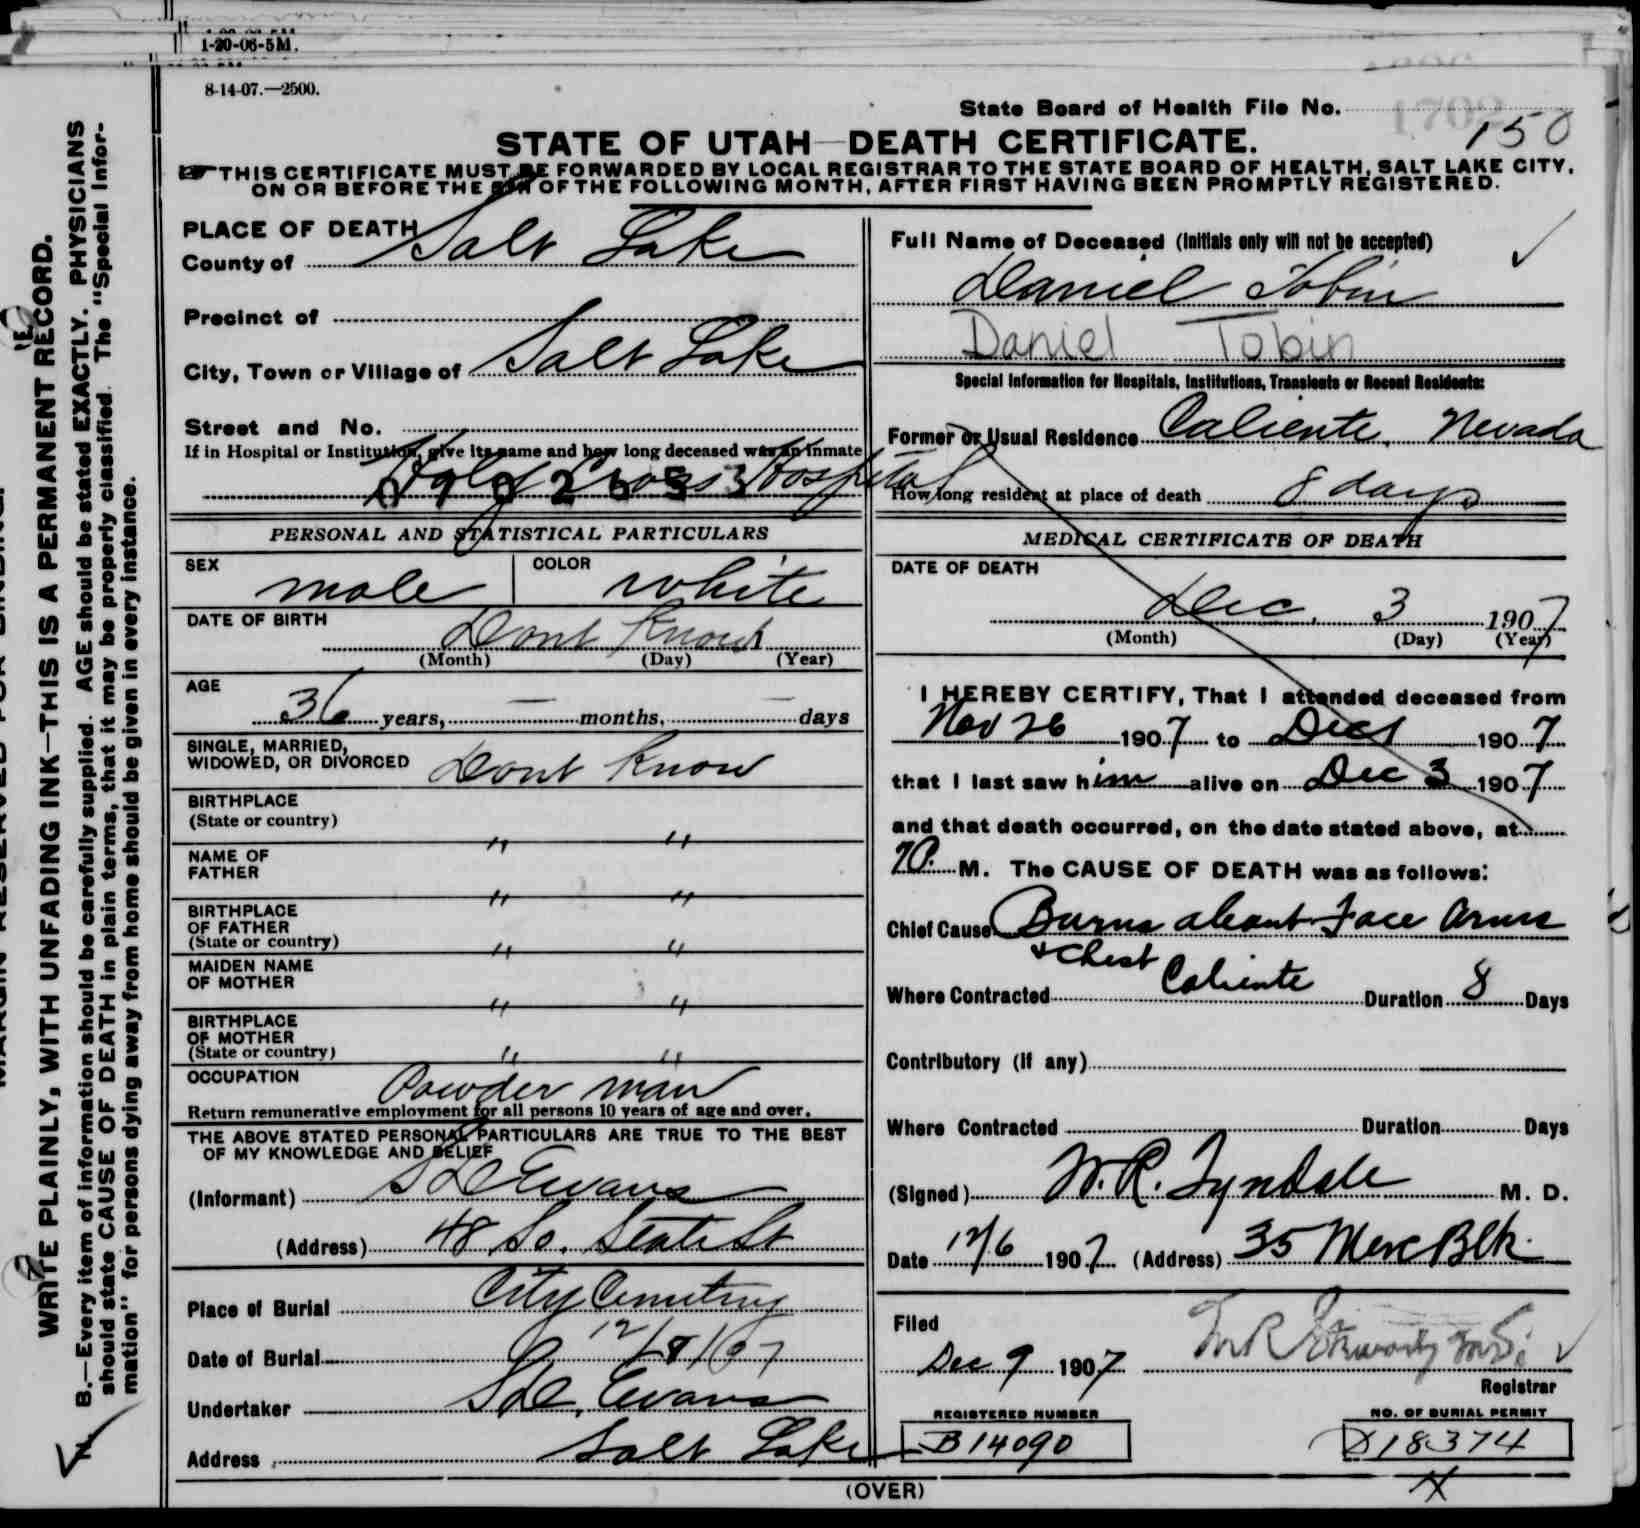 1-20-06-5M.
8-14-07.—2500.
State Board of Health File No. 1702 150
STATE OF UTAH—DEATH CERTIFICATE.
☞ THIS CERTIFICATE MUST BE FORWARDED BY LOCAL REGISTRAR TO THE STATE BOARD OF HEALTH, SALT LAKE CITY,
ON OR BEFORE THE 5TH OF THE FOLLOWING MONTH, AFTER FIRST HAVING BEEN PROMPTLY REGISTERED.
WRITE PLAINLY, WITH UNFADING INK—THIS IS A PERMANENT RECORD.
B.—Every item of information should be carefully supplied. AGE should be stated EXACTLY. PHYSICIANS
should state CAUSE OF DEATH in plain terms, that it may be properly classified. The "Special Infor-
mation" for persons dying away from home should be given in every instance.
PLACE OF DEATH
County of Salt Lake
Precinct of
City, Town or Village of Salt Lake
Street and No.
If in Hospital or Institution, give its name and how long deceased was an inmate
Holy Cross Hospital
PERSONAL AND STATISTICAL PARTICULARS
SEX male COLOR white
DATE OF BIRTH Dont Know
(Month) (Day) (Year)
AGE
36 years, — months, — days
SINGLE, MARRIED,
WIDOWED, OR DIVORCED Dont Know
BIRTHPLACE
(State or country) " "
NAME OF
FATHER " "
BIRTHPLACE
OF FATHER
(State or country) " "
MAIDEN NAME
OF MOTHER " "
BIRTHPLACE
OF MOTHER
(State or country) " "
OCCUPATION Powder man
Return remunerative employment for all persons 10 years of age and over.
THE ABOVE STATED PERSONAL PARTICULARS ARE TRUE TO THE BEST
OF MY KNOWLEDGE AND BELIEF
(Informant) S D Evans
(Address) 48 So. State St
Place of Burial City Cemetery
Date of Burial 12/8/07
Undertaker S D. Evans
Address Salt Lake
Full Name of Deceased (Initials only will not be accepted)
Daniel Tobin
Daniel Tobin
Special Information for Hospitals, Institutions, Transients or Recent Residents:
Former or Usual Residence Caliente, Nevada
How long resident at place of death 8 days
MEDICAL CERTIFICATE OF DEATH
DATE OF DEATH
Dec. 3 1907
(Month) (Day) (Year)
I HEREBY CERTIFY, That I attended deceased from
Nov 26 1907 to Dec 1907
that I last saw him alive on Dec 3 1907
and that death occurred, on the date stated above, at
7P. M. The CAUSE OF DEATH was as follows:
Chief Cause Burns about Face Arms
& Chest
Where Contracted Caliente Duration 8 Days
Contributory (if any)
Where Contracted Duration Days
(Signed) W. R. Tyndale M. D.
Date 12/6 1907 (Address) 35 Merc Blk.
Filed
Dec 9 1907
Registrar
REGISTERED NUMBER
B 14090
NO. OF BURIAL PERMIT
18374
(OVER)